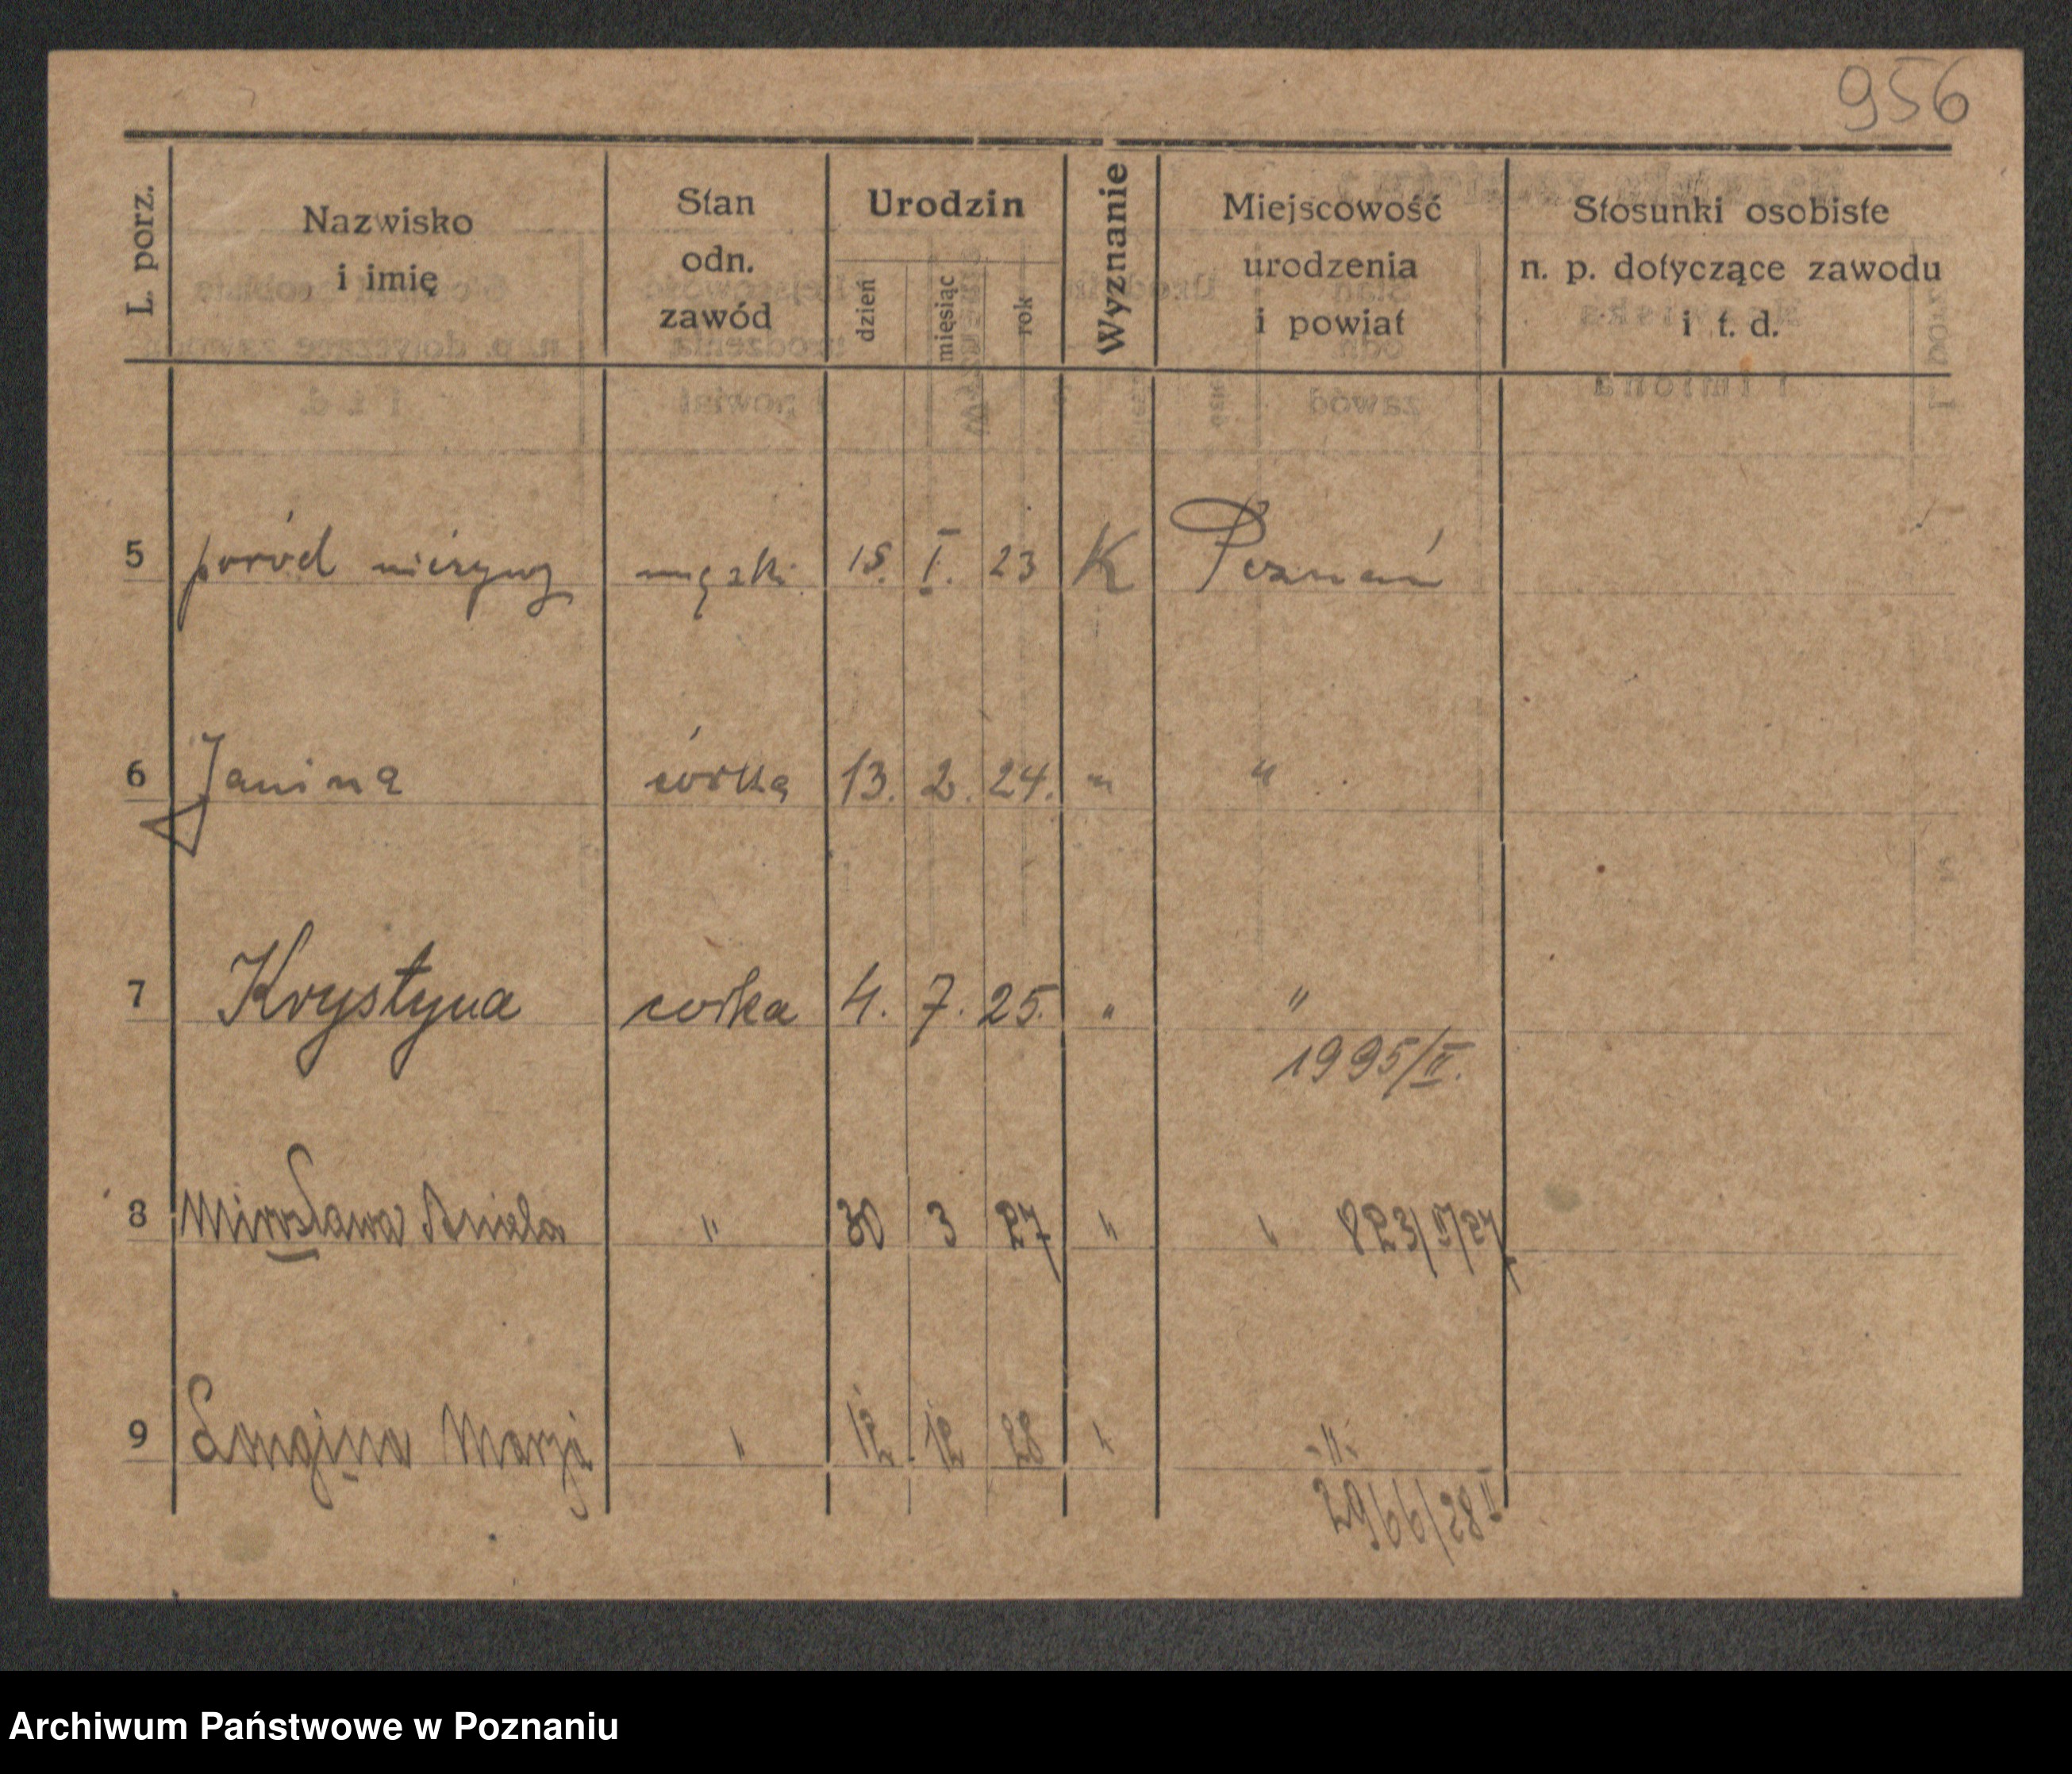 956
L. porz.
Nazwisko
i imię
Stan
odn.
zawód
Urodzin
dzień
miesiąc
rok
Wyznanie
Miejscowość
urodzenia
i powiat
Stosunki osobiste
n. p. dotyczące zawodu
i t. d.
5 poród nieżywy męski 15. I. 23 K Poznań
6 Janina córka 13. 2. 24. " "
7 Krystyna corka 4. 7. 25. " "
1995/II.
8 Mirosława Aniela " 30 3 27 " "
9 Longina Marja " 12 12 28 " -"-
2966/28 II
Archiwum Państwowe w Poznaniu